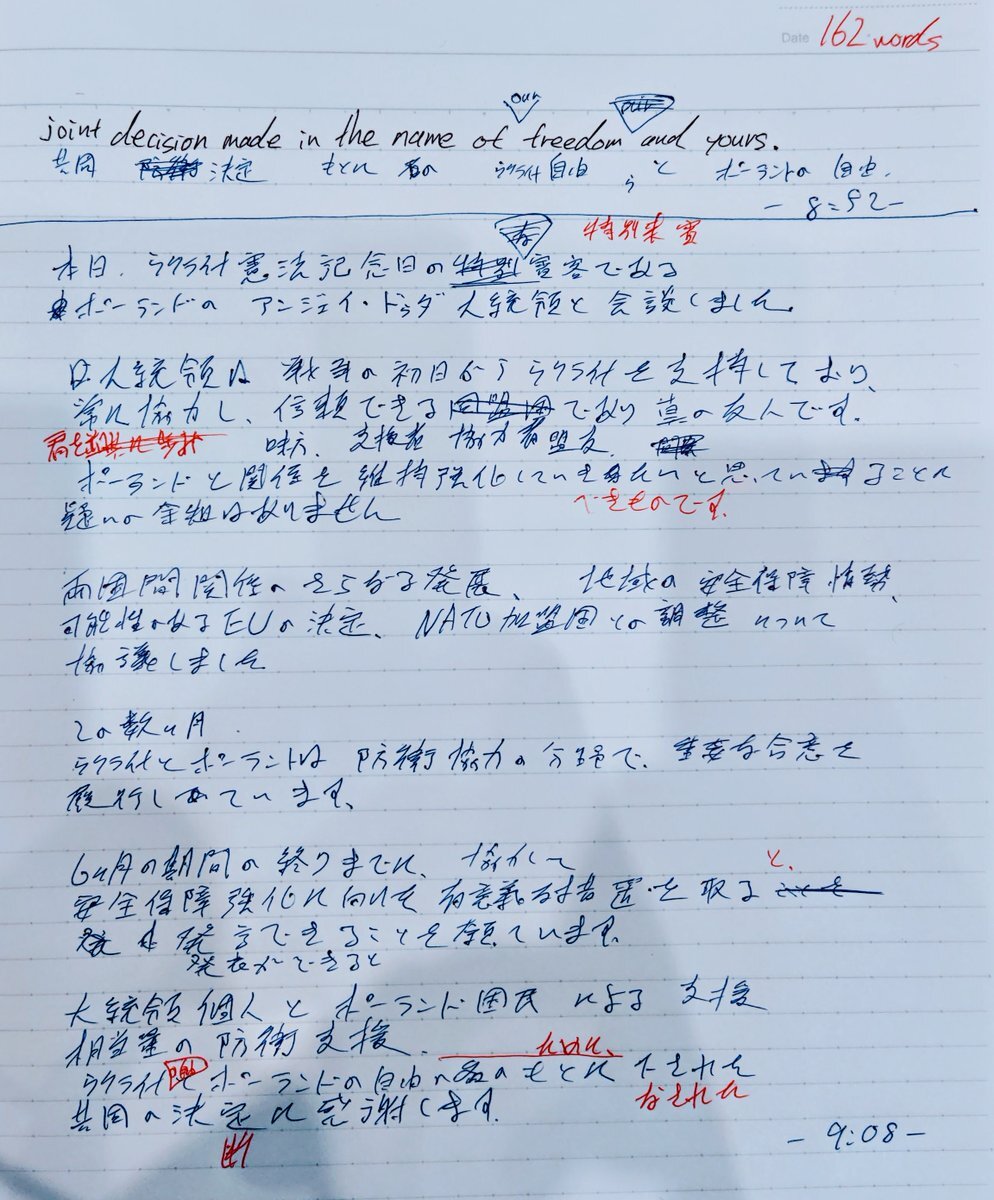 Date 162 words
our
joint decision made in the name of freedom and yours.
共同 決定 もとに 名の ウクライナ 自由 と ポーランドの 自由.
- 8:52 -
特別来賓
本日、ウクライナ憲法記念日の 賓客である
ポーランドの アンジェイ・ドゥダ 大統領と 会談しました
大統領は 戦争の初日から ウクライナを支持しており、
常に協力し、信頼できる 同盟国 であり 真の友人です.
味方、支援者 協力者 盟友、
ポーランドと関係を 維持強化していきたいと思っていることに
べきものです.
疑いの余地はありません
両国間関係のさらなる発展、 地域の安全保障情勢、
可能性のあるEUの決定、NATO加盟国との調整について
協議しました
この数ヶ月
ウクライナとポーランドは 防衛協力の分野で、重要な合意を
履行しています、
6ヶ月の期間の終りまでに、協力して
と、
安全保障強化に向けた 有意義な措置を取る
発言できることを願っています.
発表ができると
大統領個人とポーランド国民 による 支援
相当量の防衛支援、
ために、
ウクライナとポーランドの自由の名のもとに 下された
なされた
共同の決定に感謝します.
断
- 9:08 -